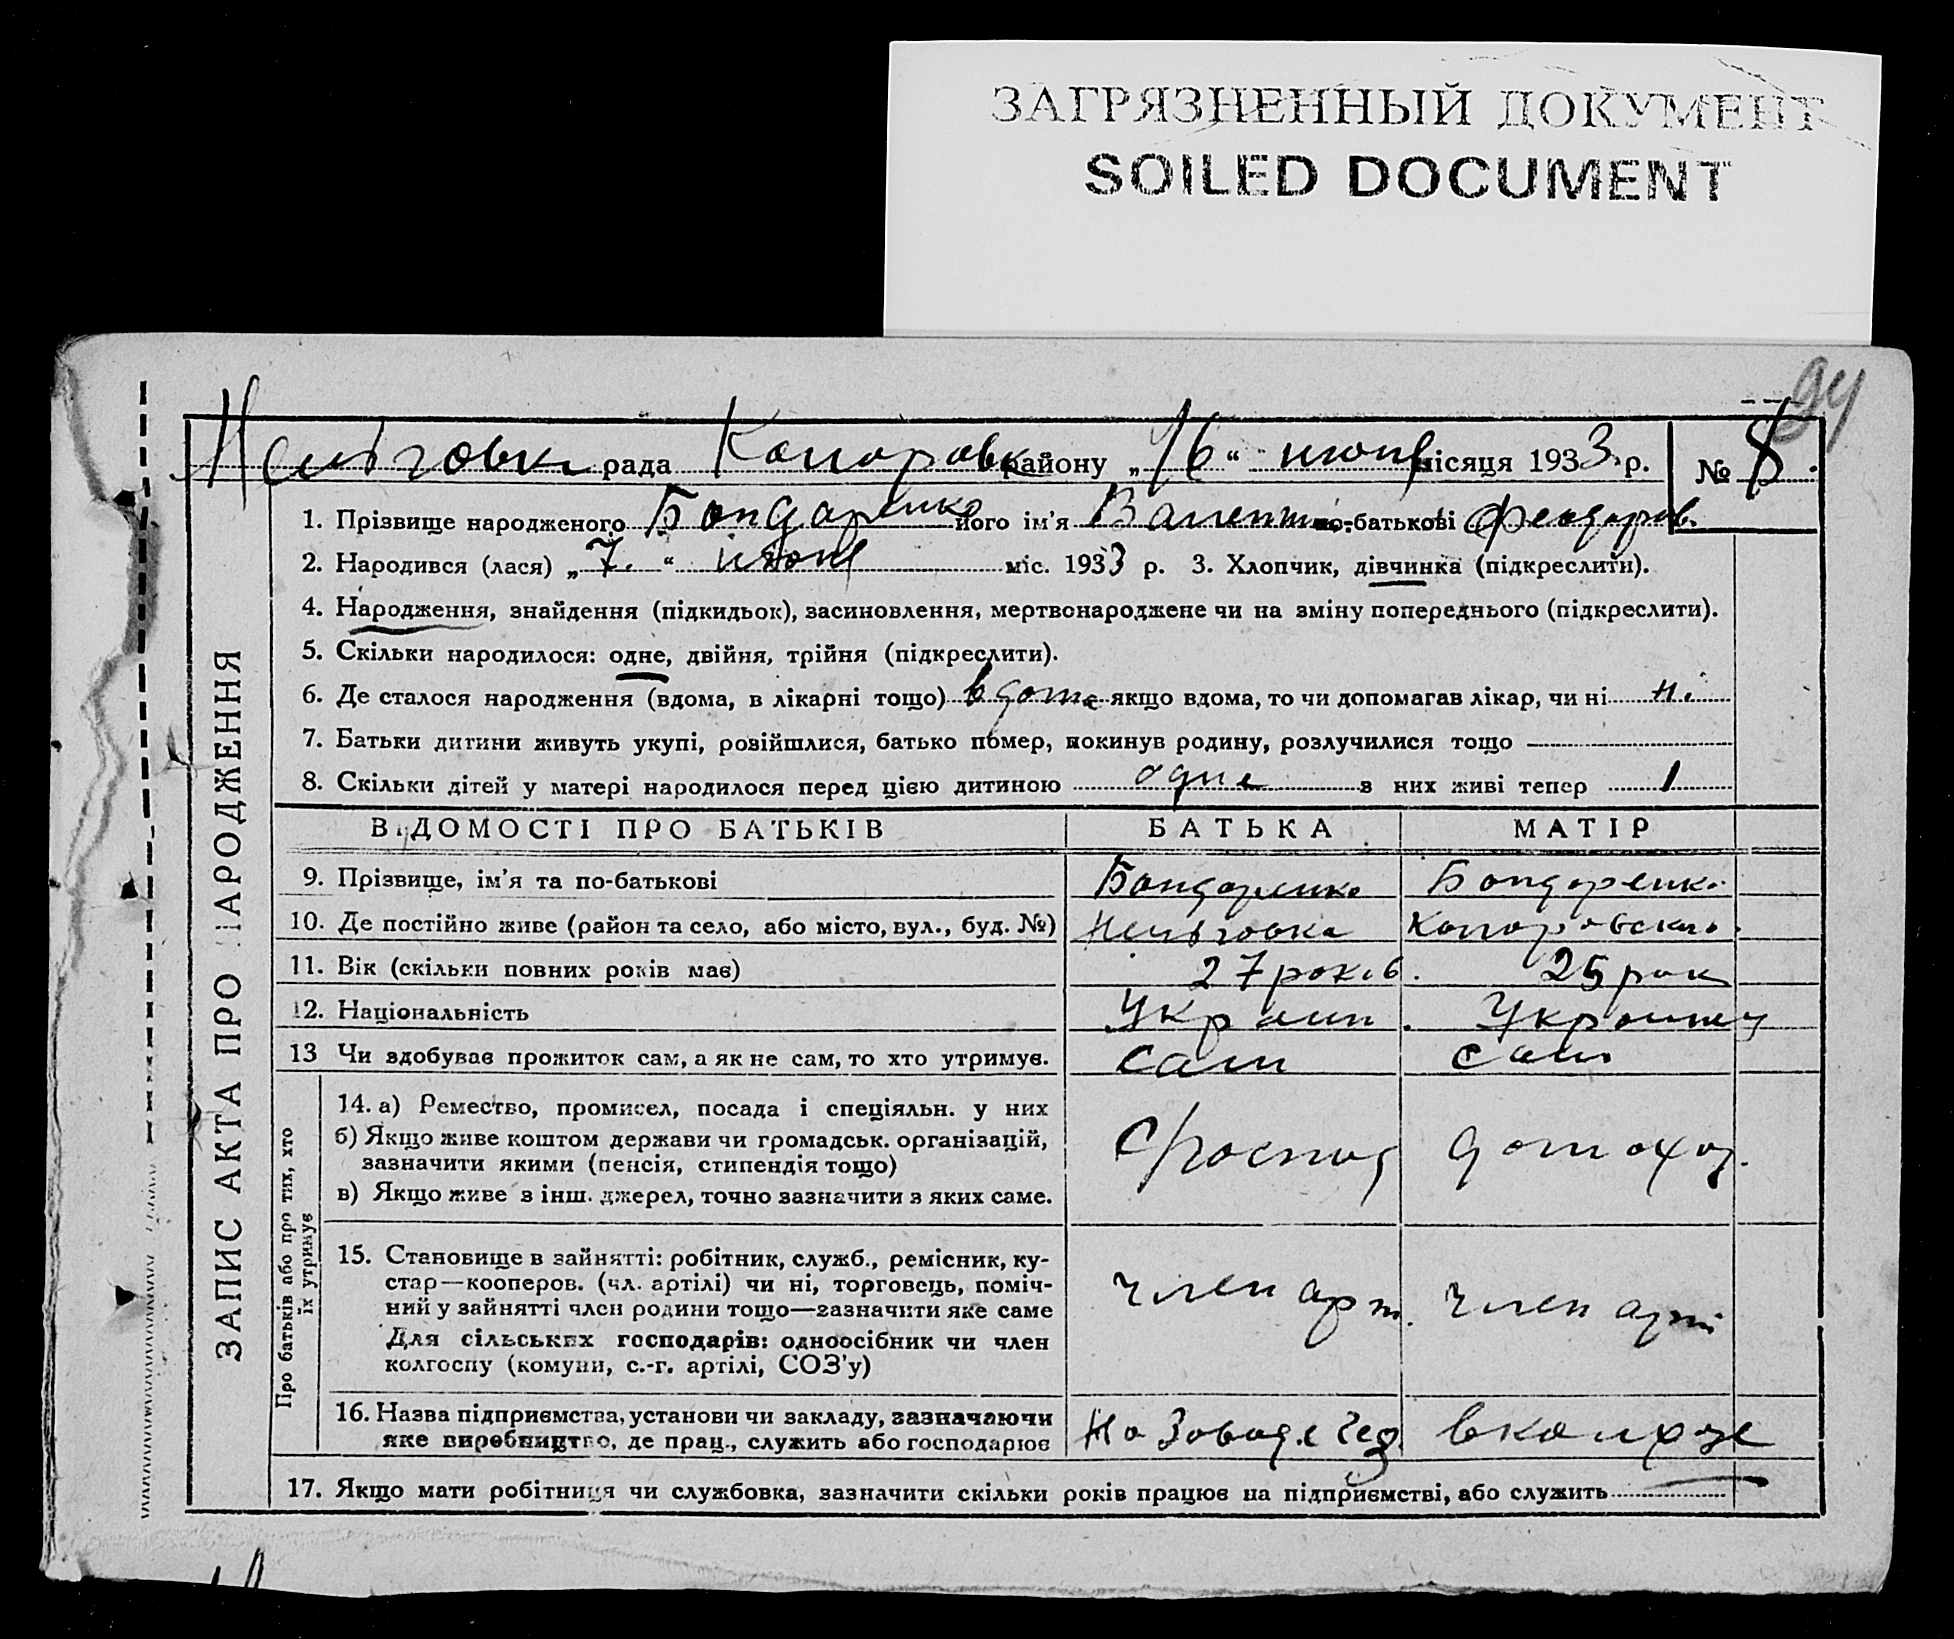 ЗАГРЯЗНЕННЫЙ ДОКУМЕНТ
SOILED DOCUMENT
94
рада району „16“ июня місяця 1933 р. № 8.
ЗАПИС АКТА ПРО НАРОДЖЕННЯ
1. Прізвище народженого Бондаренко його ім'я Валентин. по-батькові Феодоров.
2. Народився (лася) „7.“ июня міс. 1933 р. 3. Хлопчик, дівчинка (підкреслити).
4. Народження, знайдення (підкидьок), засиновлення, мертвонароджене чи на зміну попереднього (підкреслити).
5. Скільки народилося: одне, двійня, трійня (підкреслити).
6. Де сталося народження (вдома, в лікарні тощо) вдома якщо вдома, то чи допомагав лікар, чи ні ні
7. Батьки дитини живуть укупі, розійшлися, батько помер, покинув родину, розлучилися тощо
8. Скільки дітей у матері народилося перед цією дитиною одне з них живі тепер 1
ВІДОМОСТІ ПРО БАТЬКІВ БАТЬКА МАТІР
9. Прізвище, ім'я та по-батькові Бондаренко Бондаренко
10. Де постійно живе (район та село, або місто, вул., буд. №)
11. Вік (скільки повних років має) 27 років. 25 рок
12. Національність Украин. Украинец
13 Чи здобуває прожиток сам, а як не сам, то хто утримує. сам сам
Про батьків або про тих, хто
їх утримує
14. а) Ремество, промисел, посада і спеціяльн. у них
б) Якщо живе коштом держави чи громадськ. організацій,
зазначити якими (пенсія, стипендія тощо)
в) Якщо живе з інш. джерел, точно зазначити з яких саме.
домохоз.
15. Становище в зайнятті: робітник, служб., ремісник, ку-
стар—кооперов. (чл. артілі) чи ні, торговець, поміч-
ний у зайнятті член родини тощо—зазначити яке саме
Для сільських господарів: одноосібник чи член
колгоспу (комуни, с.-г. артілі, СОЗ'у)
член арт. член арті
16. Назва підприємства, установи чи закладу, зазначаючи
яке виробництво, де прац., служить або господарює
На Заводе вколхозе
17. Якщо мати робітниця чи службовка, зазначити скільки років працює на підприємстві, або служить —